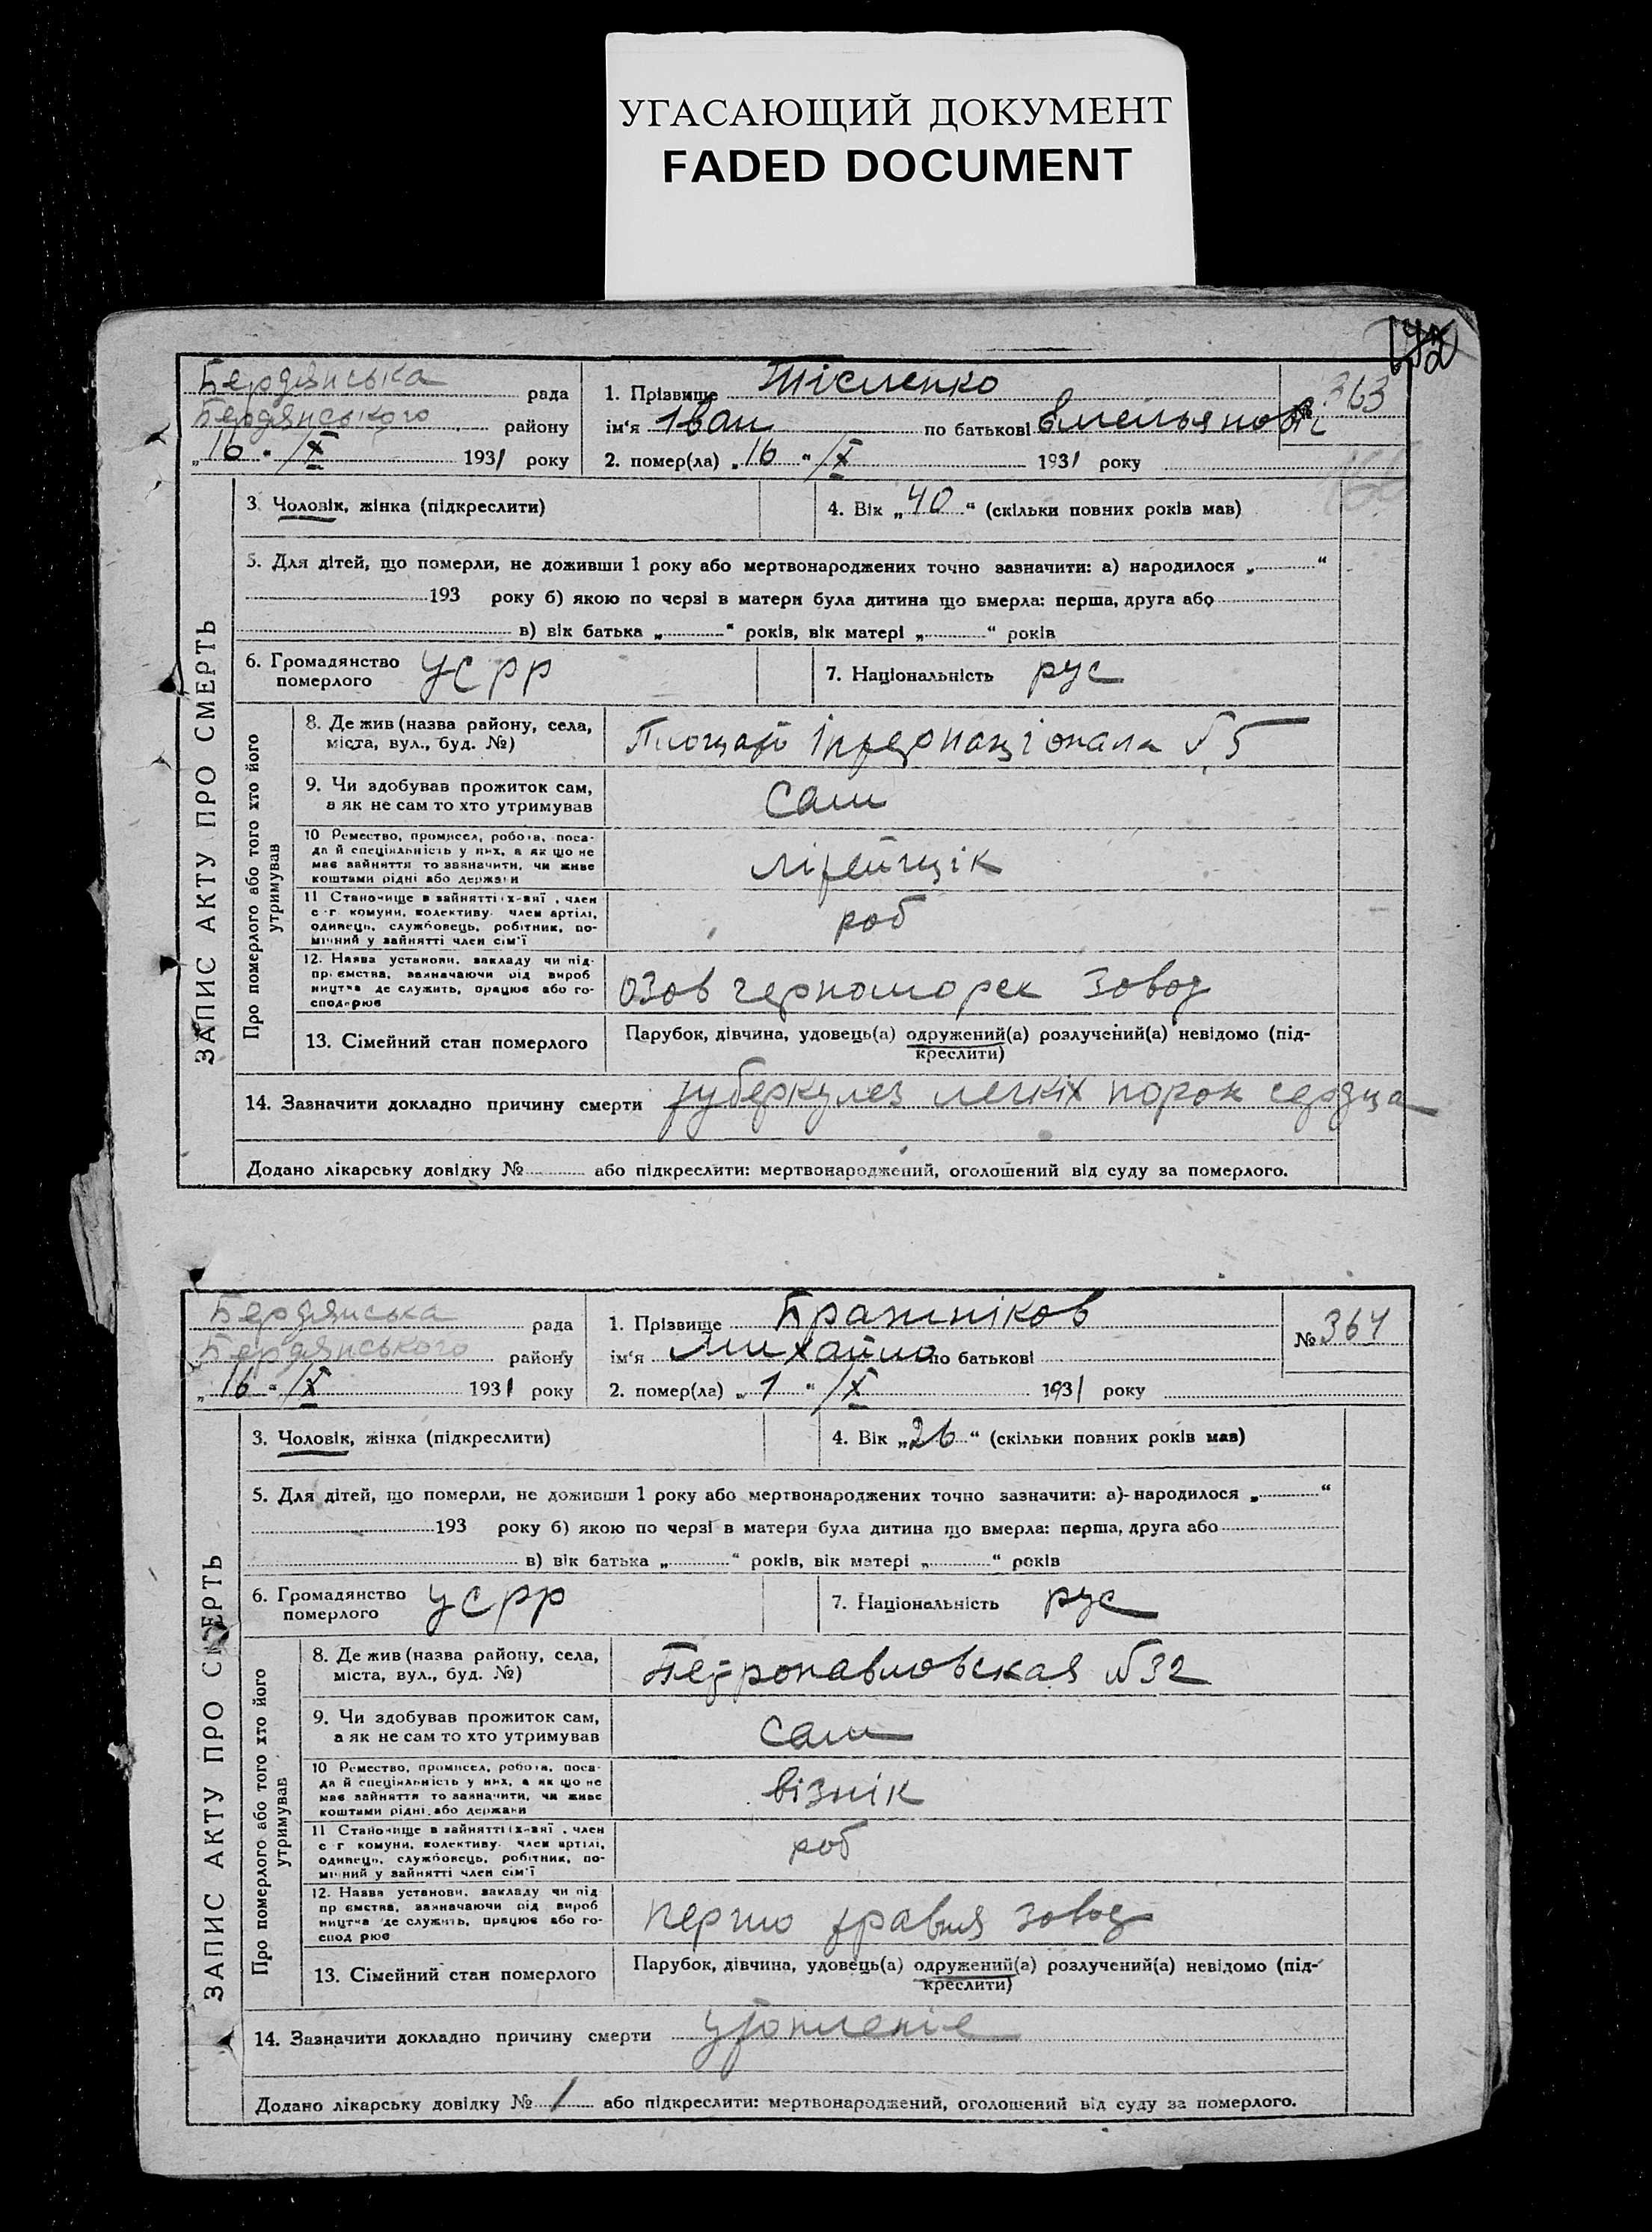 УГАСАЮЩИЙ ДОКУМЕНТ
FADED DOCUMENT
Бердянська рада
Бердянського району
„16 “ /X 1931 року
1. Прізвище
ім‘я Іван по батькові Омельянові
2. помер(ла) „16 “ /X 1931 року
363
3. Чоловік, жінка (підкреслити)
4. Вік „40“ (скільки повних років мав)
5. Для дітей, що померли, не доживши 1 року або мертвонароджених точно зазначити: а) народилося „ “
193 року б) якою по черзі в матери була дитина що вмерла: перша, друга або
в) вік батька „ “ років, вік матері „ “ років
6. Громадянство померлого УСРР
7. Національність рус
ЗАПИС АКТУ ПРО СМЕРТЬ
Про померлого або того хто його утримував
8. Де жив (назва району, села,
міста, вул., буд. №)
Площадь Інтернаціонала № 5
9. Чи здобував прожиток сам,
а як не сам то хто утримував
сам
10 Ремество, промисел, робота, поса-
да й спеціяльність у них, а як що не
має зайняття то зазначити, чи живе
коштами рідні або держави
літейщік
11 Становище в зайнятті: х-вяї, член
с-г комуни, колективу, член артілі,
одинець, службовець, робітник, по-
мічний у зайнятті член сім‘ї
роб
12. Назва установи, закладу чи під-
приємства, зазначаючи рід вироб
ництва де служить, працює або го-
сподарює
Озов черноморск завод
13. Сімейний стан померлого
Парубок, дівчина, удовець(а) одружений(а) розлучений(а) невідомо (під-
креслити)
14. Зазначити докладно причину смерти туберкулез легкіх порок сердца
Додано лікарську довідку № або підкреслити: мертвонароджений, оголошений від суду за померлого.
Бердянська рада
Бердянського району
„16 “ /X 1931 року
1. Прізвище Бражніков
ім‘я Михайло по батькові
2. помер(ла) „ 1 “ /X 1931 року
№ 364
3. Чоловік, жінка (підкреслити)
4. Вік „26“ (скільки повних років мав)
5. Для дітей, що померли, не доживши 1 року або мертвонароджених точно зазначити: а) народилося „ “
193 року б) якою по черзі в матери була дитина що вмерла: перша, друга або
в) вік батька „ “ років, вік матері „ “ років
6. Громадянство померлого УСРР
7. Національність рус
ЗАПИС АКТУ ПРО СМЕРТЬ
Про померлого або того хто його утримував
8. Де жив (назва району, села,
міста, вул., буд. №)
Петропавловская № 32
9. Чи здобував прожиток сам,
а як не сам то хто утримував
сам
10 Ремество, промисел, робота, поса-
да й спеціяльність у них, а як що не
має зайняття то зазначити, чи живе
коштами рідні або держави
візнік
11 Становище в зайнятті: х-вяї, член
с-г комуни, колективу, член артілі,
одинець, службовець, робітник, по-
мічний у зайнятті член сім‘ї
роб
12. Назва установи, закладу чи під
приємства, зазначаючи рід вироб
ництва де служить, працює або го-
сподарює
першо травня завод
13. Сімейний стан померлого
Парубок, дівчина, удовець(а) одружений(а) розлучений(а) невідомо (під-
креслити)
14. Зазначити докладно причину смерти утопленіе
Додано лікарську довідку № / або підкреслити: мертвонароджений, оголошений від суду за померлого.